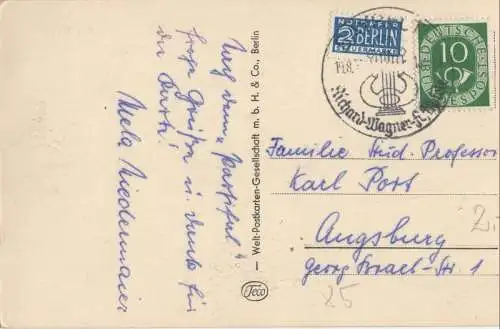 Aus dem „Parsifal“
frohe Grüße u. Dank für
die Karte!
Mela Niedermaier
— Welt-Postkarten-Gesellschaft m. b. H. & Co., Berlin
Teco
NOTOPFER
2 BERLIN
STEUERMARKE
19.8.
Richard-Wagner-
DEUTSCHE BUNDESPOST
10
Familie Stud. Professor
Karl Port
Augsburg
Georg Brach-Str 1
25
2.